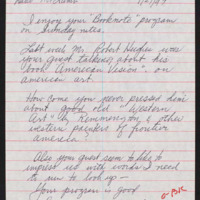 I enjoy your Booknote program
on Sunday nites.
Last week Mr. Robert Hughes was
your guest talking about his
book "American Vision", on
american art.
How come you never pressed him
about good old "Western
Art" by Remmington, & other
western painters of frontier
America?
Also you guest seem to like to
impress us with words I need
to run to look up —
Your program is good